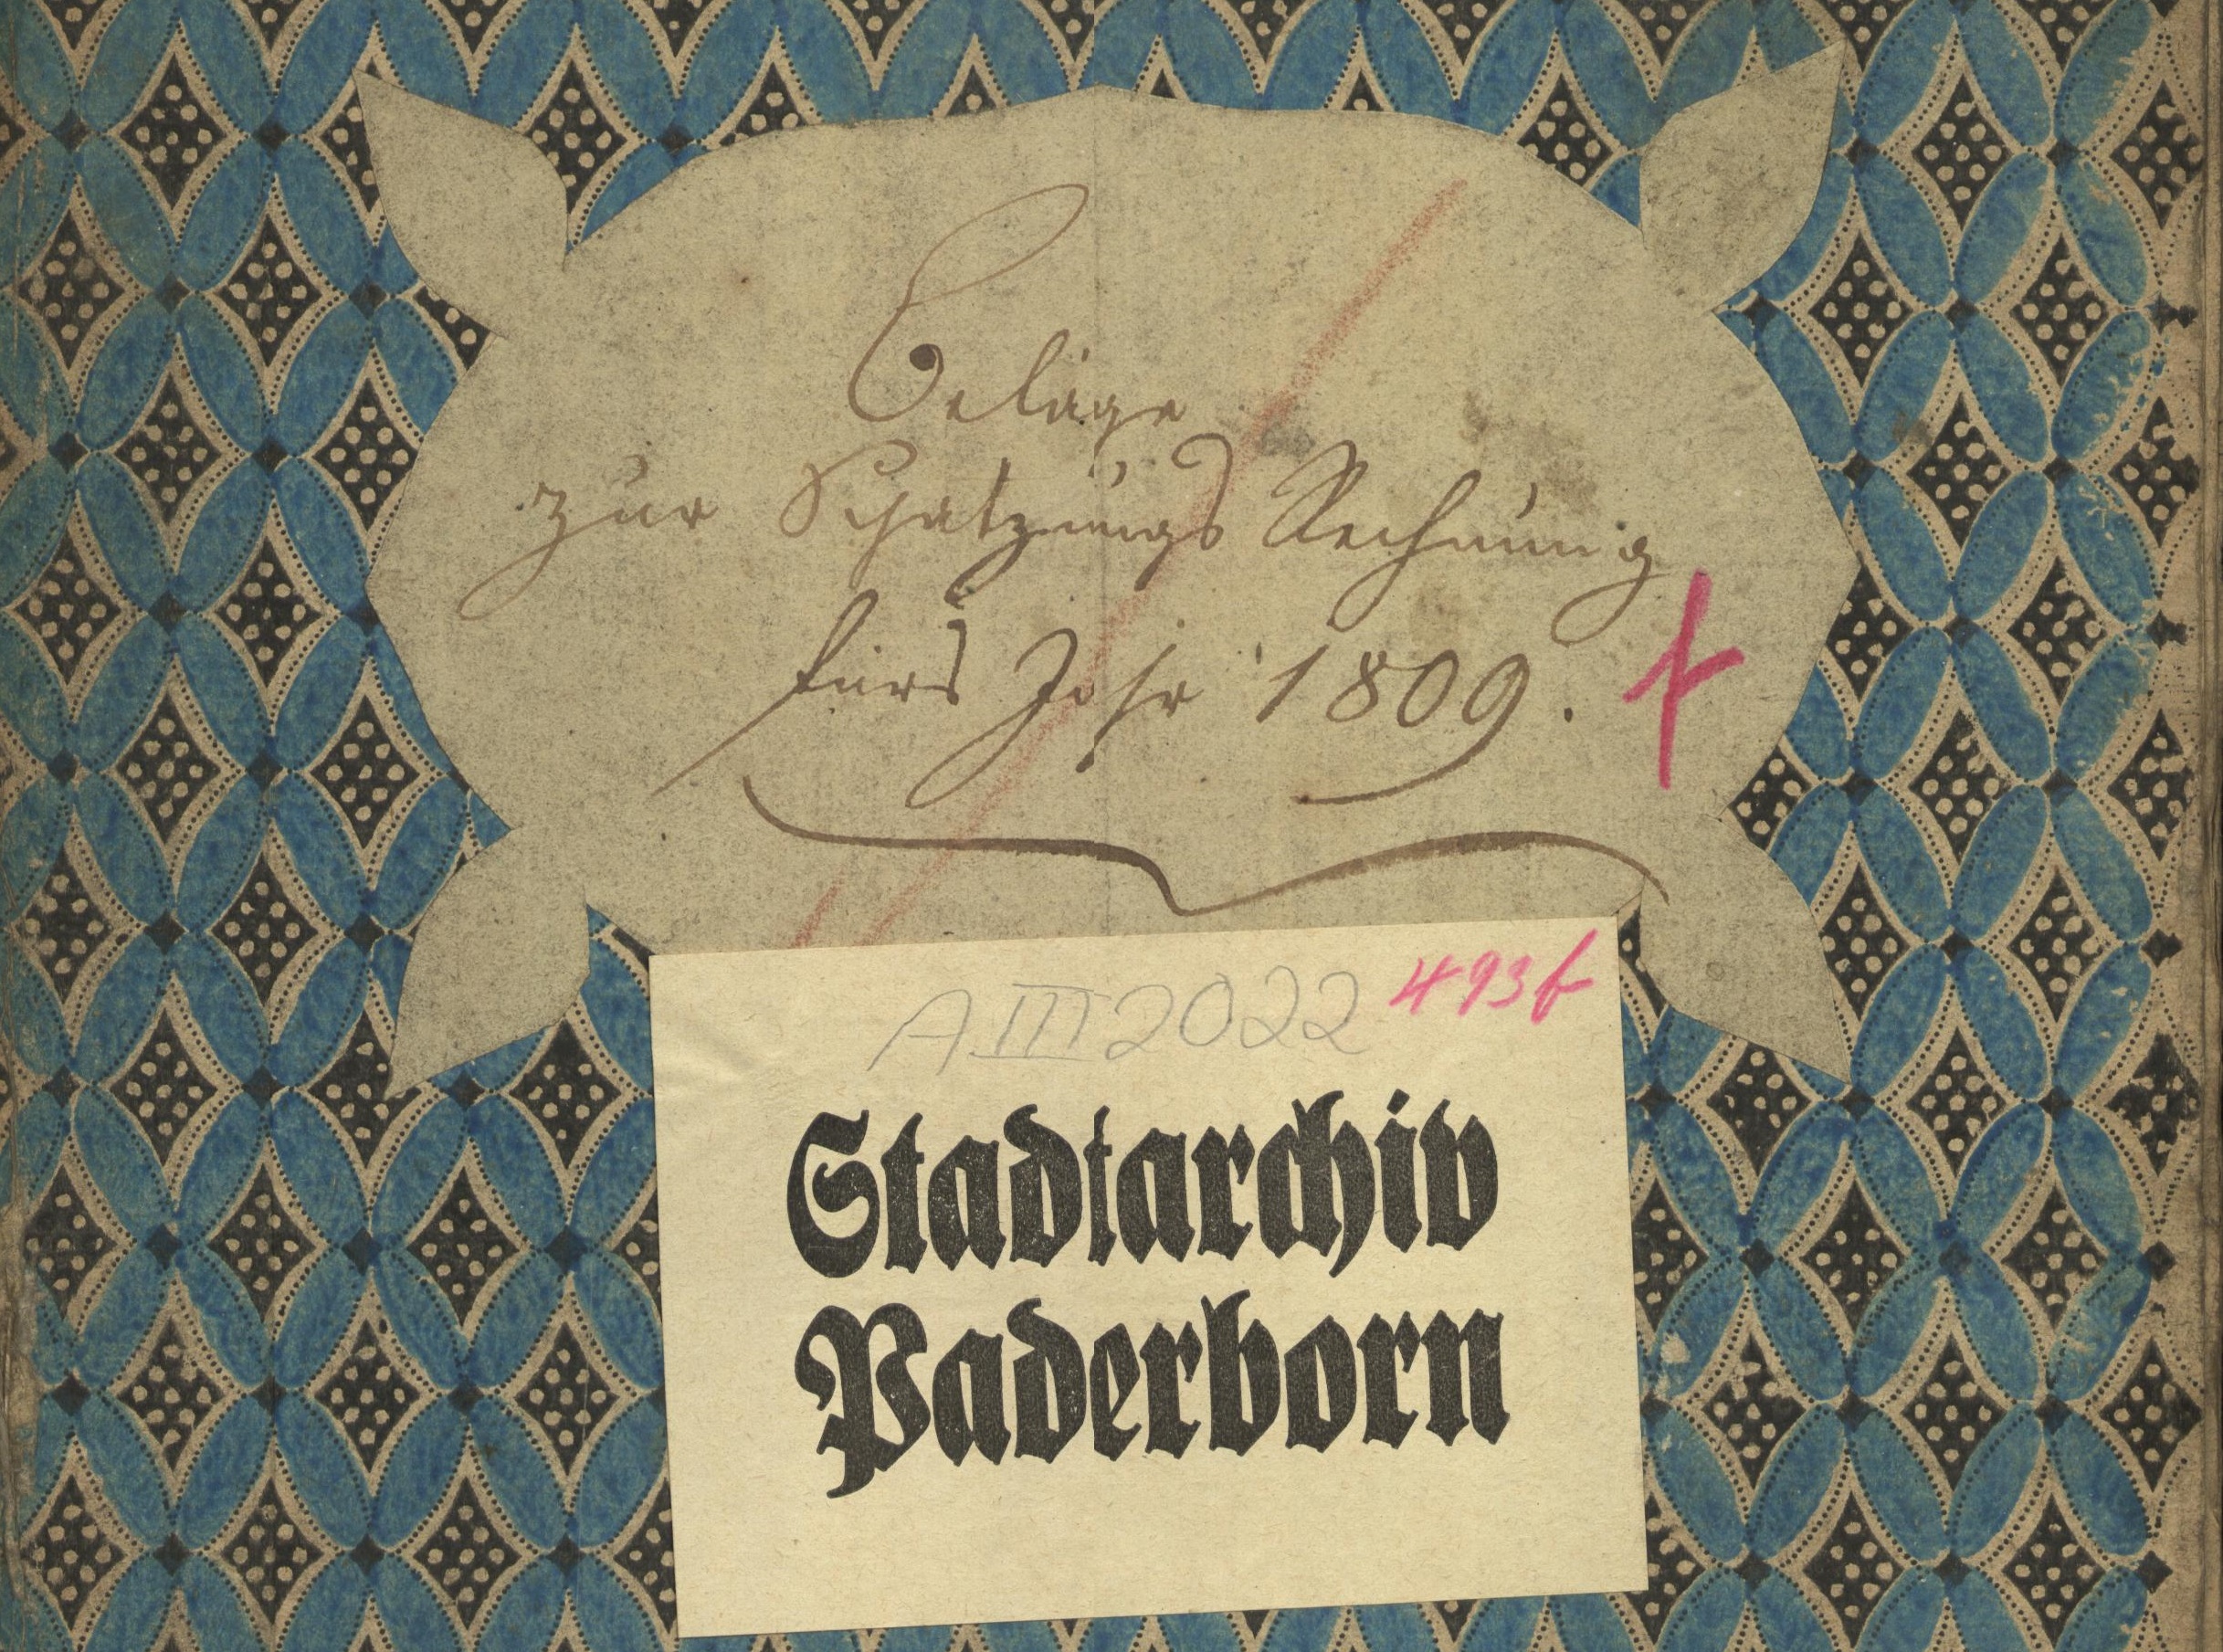 Beläge
zur Schatzungs Rechnung
fürs Jahr 1809.
A III 2022 493f
Stadtarchiv
Paderborn